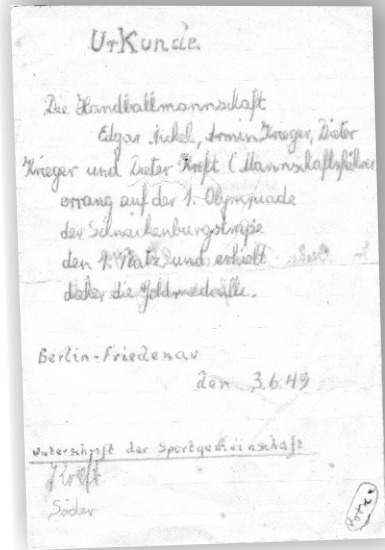 Urkunde.
Die Handballmannschaft
Edgar Nickel, Armin Krieger, Dieter
Krieger und Dieter Kreft (Mannschaftsführer
errang auf der 1. Olympiade
der Schnackenburgstraße
den 1. Platz und erhielt
daher die Goldmedaille.
Berlin-Friedenau
den 3.6.49
Unterschrift der Sportgemeinschaft
Kreft
Söder